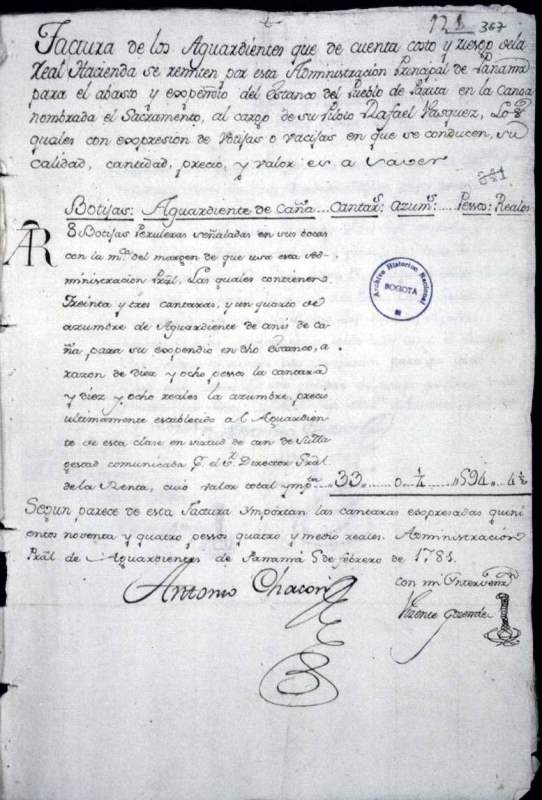 121 367
Factura de los Aguardientes que de cuenta costo y riesgo de la
Real Hazienda se remiten por esta Administración Principal de Panamá
para el abasto y expendio del estanco del Pueblo de Parita en la Canoa
nombrada el Sacramento, al cargo de su Piloto Rafael Vasquez, Los
quales con expresion de Votijas o vacijas en que se conducen, su
calidad, cantidad, precio, y valor es a saver
Botijas: Aguardiente de Caña .... Cantars. azums. Pessos: Reales
8 Botijas Peruleras señaladas en sus bocas
con la mca. del margen de que usa esta Ad-
ministracion Pral. Las quales contienen
Treinta y tres cantaras, y un quarto de
azumbre de Aguardiente de anis de ca-
ña, para su expendio en dho Estanco, a
razon de diez y ocho pessos la cantara
y diez y ocho reales la azumbre, precio
ultimamente establecido al Aguardien-
te de esta clase en virtud de orn de Su Ma-
gestad comunicada Pr. el Sr. Director Gral
de la Renta, cuio valor total ymptn .. 33 .... 0 .. ¼ .... 594 .. 4½
Segun parece de esta Factura Importan las cantaras expresadas quini
entos noventa y quatro pessos quatro y medio reales. Administracion
Pral de Aguardientes de Panamá 5 de febrero de 1781.
Antonio Chacon
con mi Intervenon
Vizente
AR
Archivo Historico Nacional
BOGOTA